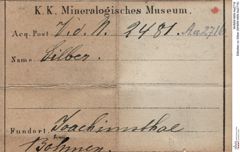 K. K. Mineralogisches Museum.
Acq. Post V. d. N. 2481. Aa2716
Name Silber.
Fundort Joachimsthal
Böhmen.